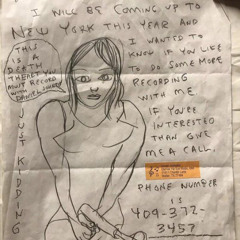 I WILL BE COMING UP TO
NEW YORK THIS YEAR AND
I WANTED TO
KNOW IF YOU LIKE
TO DO SOME MORE
RECORDING
WITH ME
IF YOU'RE
INTERESTED
THAN GIVE
ME A CALL.
PHONE NUMBER
IS
409-372-
3457
THIS
IS A
DEATH
THREAT YOU
MUST RECORD
WITH
JUST KIDDING